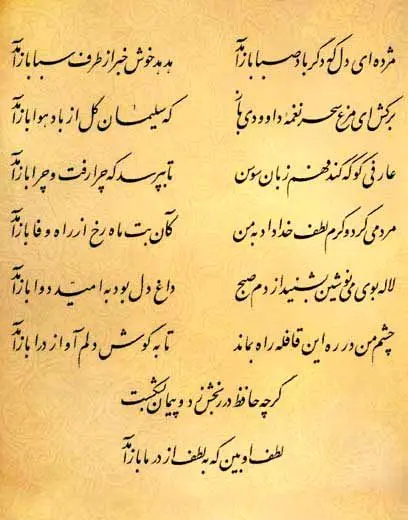 مژده ای دل که دگر باد صبا باز آمد هدهد خوش خبر از طرف سبا باز آمد
برکش ای مرغ سحر نغمه داوودی باز که سلیمان گل از باد هوا باز آمد
عارفی کو که کند فهم زبان سوسن تا بپرسد که چرا رفت و چرا باز آمد
مردمی کرد و کرم لطف خداداد به من کآن بت ماه رخ از راه وفا باز آمد
لاله بوی می نوشین بشنید از دم صبح داغ دل بود به امید دوا باز آمد
چشم من در ره این قافله راه بماند تا به گوش دلم آواز درا باز آمد
گرچه حافظ در رنجش زد و پیمان بشکست
لطف او بین که به لطف از در ما باز آمد